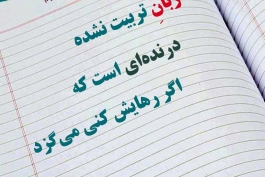 زبانِ تربیت نشده
درنده‌ای است که
اگر رهایش کنی می گزد